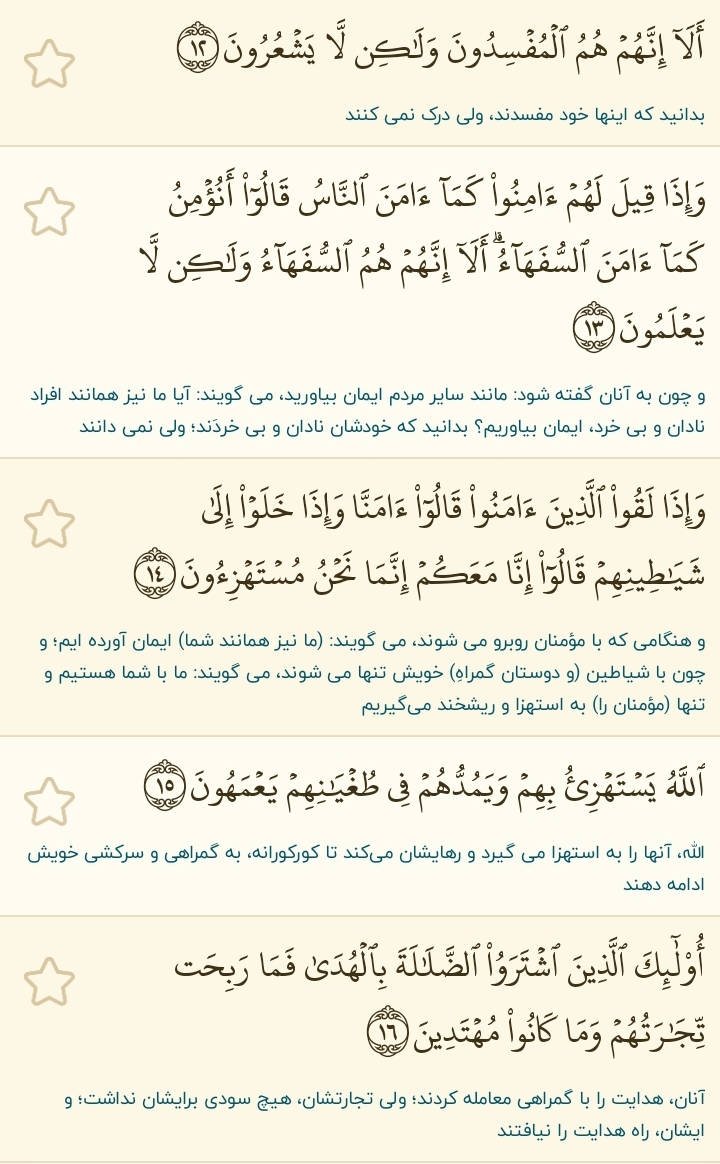 أَلَآ إِنَّهُمۡ هُمُ ٱلۡمُفۡسِدُونَ وَلَٰكِن لَّا يَشۡعُرُونَ ١٢
بدانید که اینها خود مفسدند، ولی درک نمی کنند
وَإِذَا قِيلَ لَهُمۡ ءَامِنُواْ كَمَآ ءَامَنَ ٱلنَّاسُ قَالُوٓاْ أَنُؤۡمِنُ
كَمَآ ءَامَنَ ٱلسُّفَهَآءُۗ أَلَآ إِنَّهُمۡ هُمُ ٱلسُّفَهَآءُ وَلَٰكِن لَّا
يَعۡلَمُونَ ١٣
و چون به آنان گفته شود: مانند سایر مردم ایمان بیاورید، می گویند: آیا ما نیز همانند افراد
نادان و بی خرد، ایمان بیاوریم؟ بدانید که خودشان نادان و بی خردَند؛ ولی نمی دانند
وَإِذَا لَقُواْ ٱلَّذِينَ ءَامَنُواْ قَالُوٓاْ ءَامَنَّا وَإِذَا خَلَوۡاْ إِلَىٰ
شَيَٰطِينِهِمۡ قَالُوٓاْ إِنَّا مَعَكُمۡ إِنَّمَا نَحۡنُ مُسۡتَهۡزِءُونَ ١٤
و هنگامی که با مؤمنان روبرو می شوند، می گویند: (ما نیز همانند شما) ایمان آورده ایم؛ و
چون با شیاطین (و دوستان گمراهِ) خویش تنها می شوند، می گویند: ما با شما هستیم و
تنها (مؤمنان را) به استهزا و ریشخند می‌گیریم
ٱللَّهُ يَسۡتَهۡزِئُ بِهِمۡ وَيَمُدُّهُمۡ فِي طُغۡيَٰنِهِمۡ يَعۡمَهُونَ ١٥
الله، آنها را به استهزا می گیرد و رهایشان می‌کند تا کورکورانه، به گمراهی و سرکشی خویش
ادامه دهند
أُوْلَٰٓئِكَ ٱلَّذِينَ ٱشۡتَرَوُاْ ٱلضَّلَٰلَةَ بِٱلۡهُدَىٰ فَمَا رَبِحَت
تِّجَٰرَتُهُمۡ وَمَا كَانُواْ مُهۡتَدِينَ ١٦
آنان، هدایت را با گمراهی معامله کردند؛ ولی تجارتشان، هیچ سودی برایشان نداشت؛ و
ایشان، راه هدایت را نیافتند